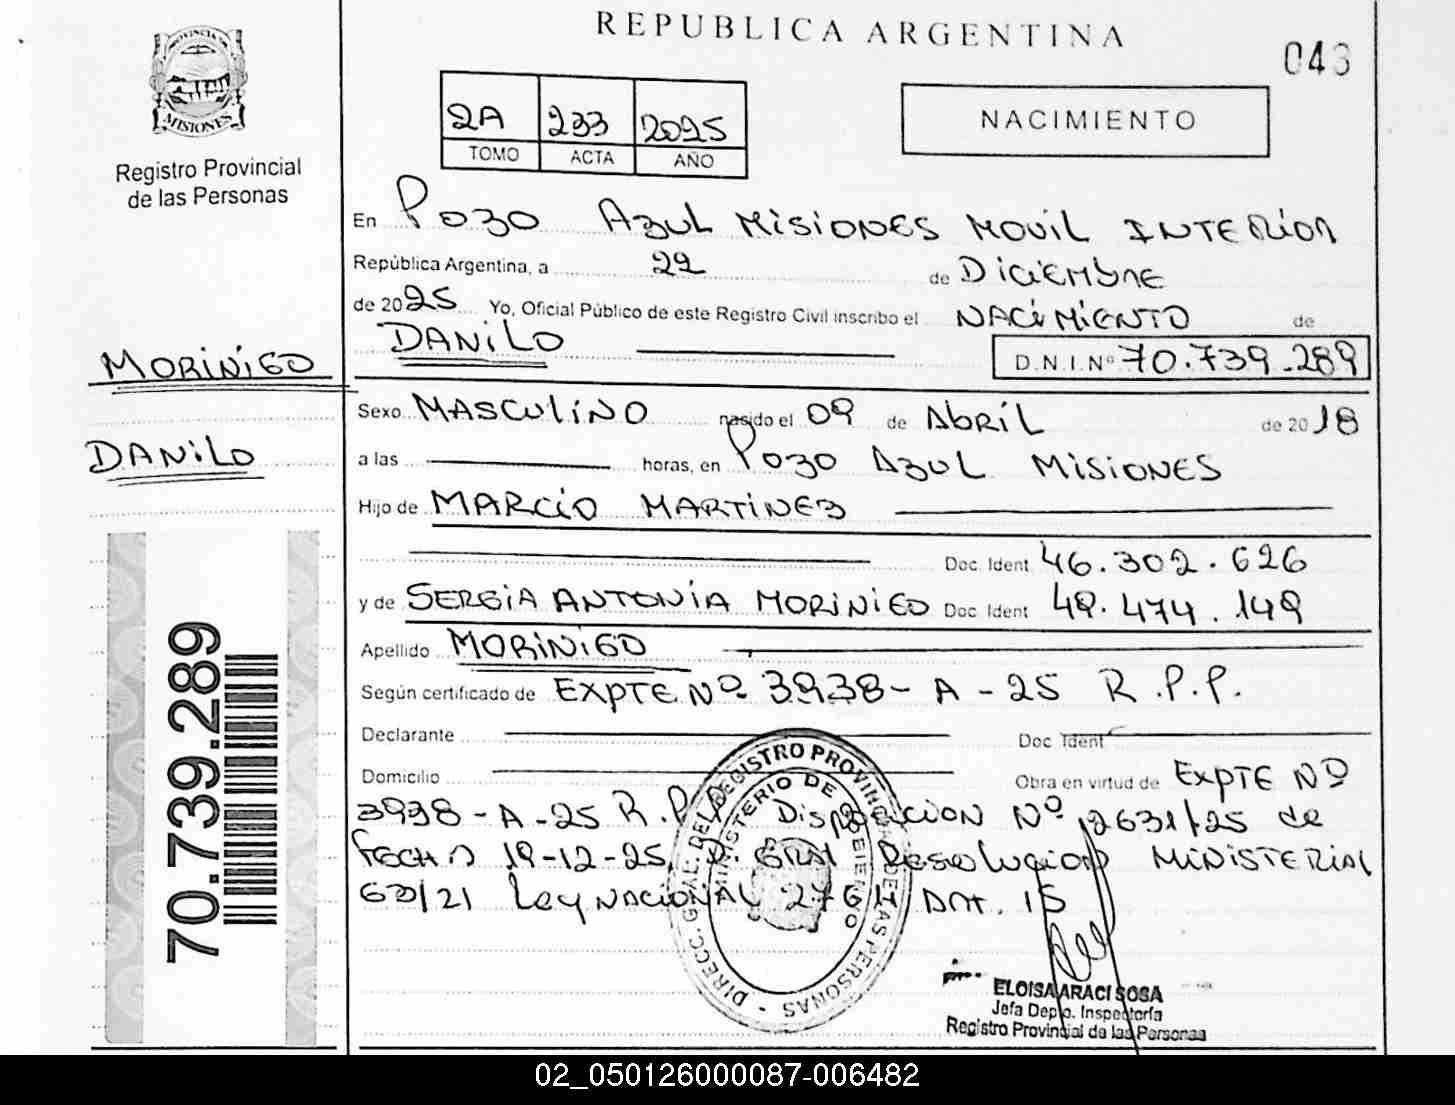 REPUBLICA ARGENTINA
043
PROVINCIA DE MISIONES
Registro Provincial
de las Personas
2A 233 2025
TOMO ACTA AÑO
NACIMIENTO
En Pozo Azul Misiones Movil Interior
República Argentina, a 22 de Diciembre
de 2025 Yo, Oficial Público de este Registro Civil inscribo el NACIMIENTO de
DANILO
D.N.I. Nº 70.739.289
MORINIGO
DANILO
Sexo MASCULINO nasido el 09 de Abril de 2018
a las horas, en Pozo Azul Misiones
Hijo de MARCIO MARTINEZ
Doc. Ident. 46.302.626
y de SERGIA ANTONIA MORINIGO Doc. Ident 49.474.149
Apellido MORINIGO
Según certificado de EXPTE Nº 3938-A-25 R.P.P.
Declarante Doc. Ident
Domicilio Obra en virtud de Expte Nº
3938-A-25 R.P.P. Disposicion Nº 2631/25 de
fecha 19-12-25. D. Gral Resolucion Ministerial
63/21 Ley Nacional 27611 Art. 15
DIRECC. GRAL. DEL REGISTRO PROVINCIAL DE LAS PERSONAS
MINISTERIO DE GOBIERNO
ELOISA ARACI SOSA
Jefa Depto. Inspectoría
Registro Provincial de las Personas
70.739.289
02_050126000087-006482